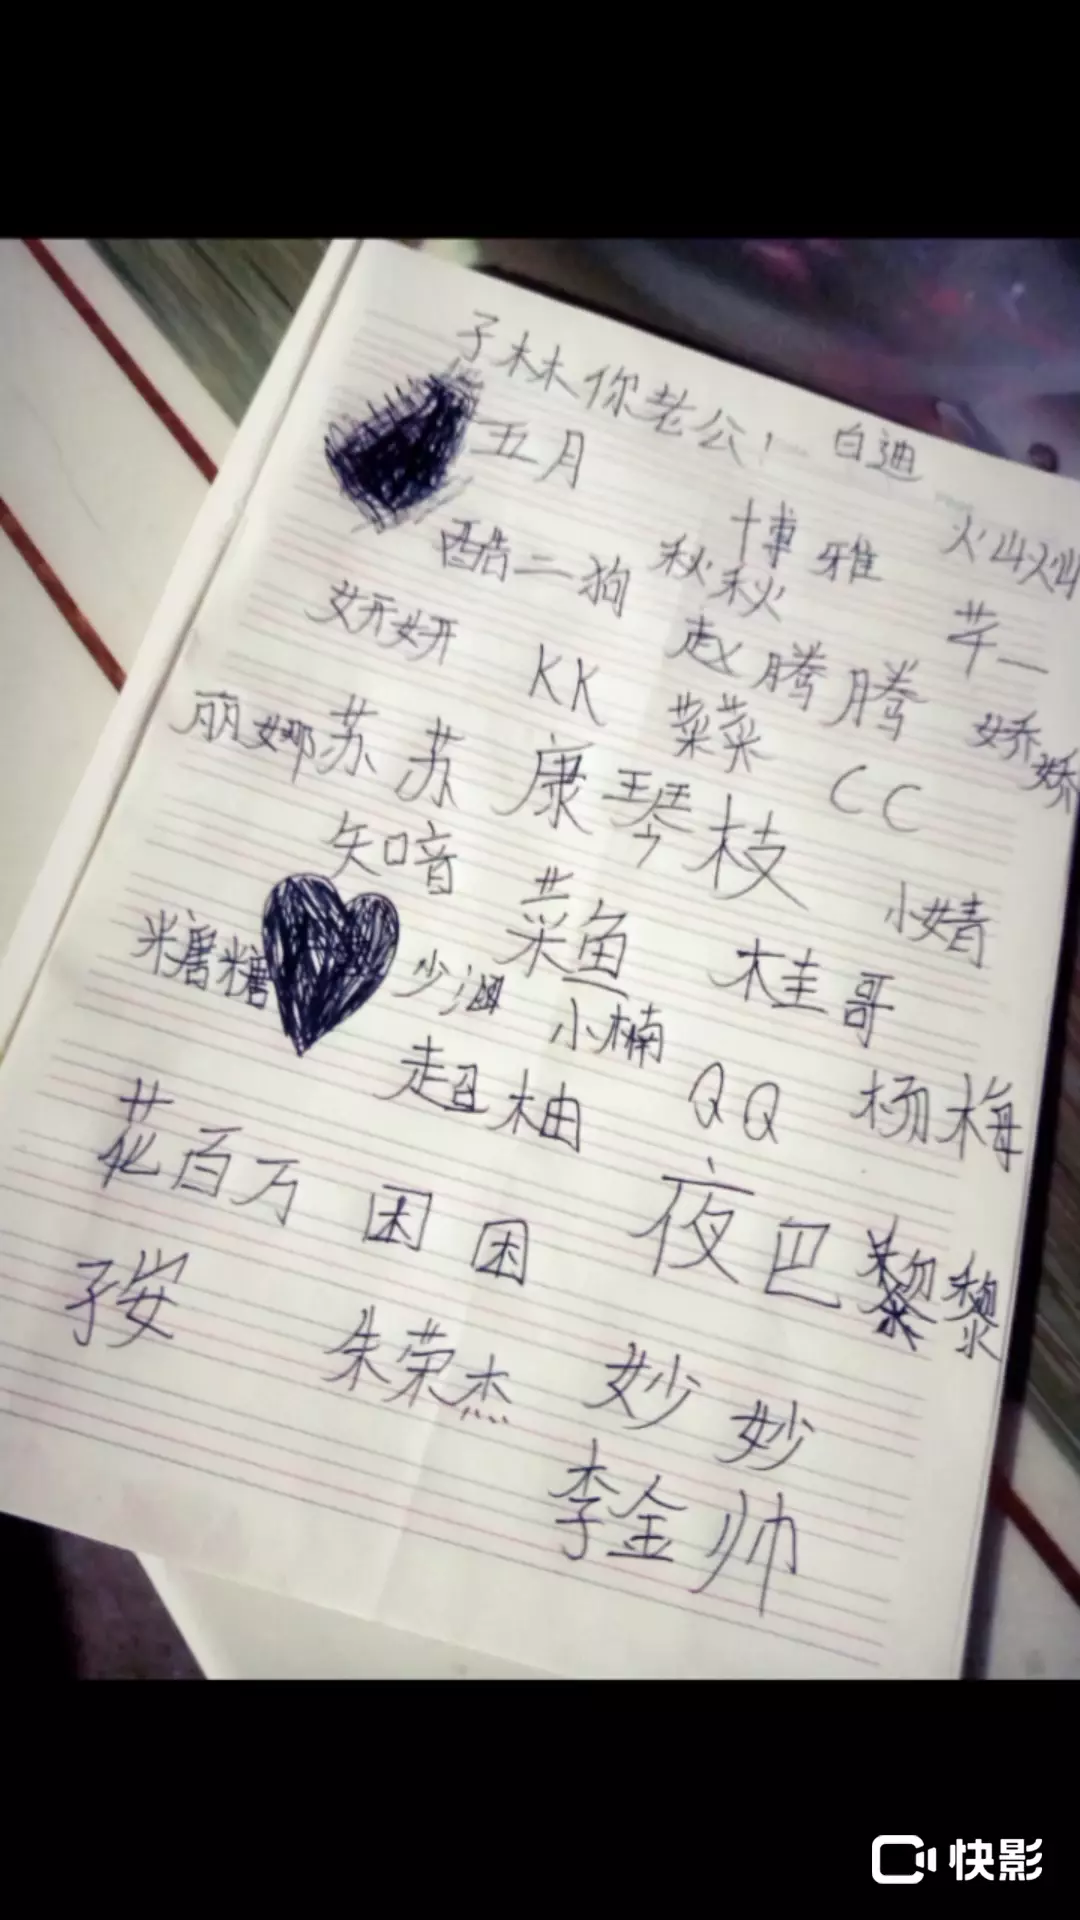 子林你老公! 白迪
五月
博雅
酷二狗 秋秋
妍妍 KK 赵腾腾 芊一
丽娜 苏苏 菜菜 娇娇
康琴枝 CC
知音 菜鱼 小婧
糖糖 少涵 桂哥
小楠
超柚 QQ 杨梅
花百万 困困 夜巴 黎黎
子安 朱荣杰 妙妙
李金帅
快影